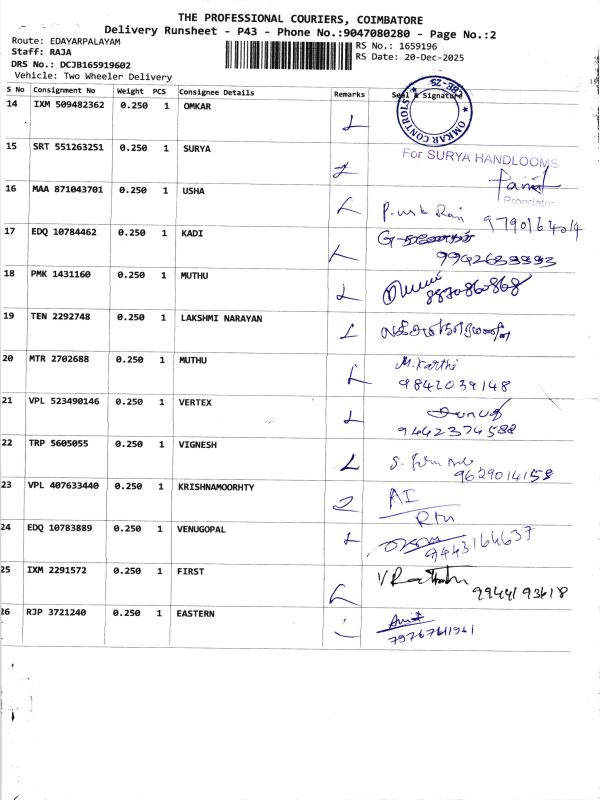 THE PROFESSIONAL COURIERS, COIMBATORE
Delivery Runsheet - P43 - Phone No.:9047080280 - Page No.:2
Route: EDAYARPALAYAM
RS No.: 1659196
Staff: RAJA
RS Date: 20-Dec-2025
DRS No.: DCJB165919602
Vehicle: Two Wheeler Delivery
S No Consignment No Weight PCS Consignee Details Remarks Seal & Signature
14 IXM 509482362 0.250 1 OMKAR
OMKAR CONSTRO
CBE-25
15 SRT 551263251 0.250 1 SURYA
For SURYA HANDLOOMS
Proprietor
16 MAA 871043701 0.250 1 USHA
9790164014
17 EDQ 10784462 0.250 1 KADI
18 PMK 1431160 0.250 1 MUTHU
8870860868
19 TEN 2292748 0.250 1 LAKSHMI NARAYAN
20 MTR 2702688 0.250 1 MUTHU
M.Karthi
9842039148
21 VPL 523490146 0.250 1 VERTEX
9442374588
22 TRP 5605055 0.250 1 VIGNESH
9629014158
23 VPL 407633440 0.250 1 KRISHNAMOORHTY
24 EDQ 10783889 0.250 1 VENUGOPAL
9443164637
25 IXM 2291572 0.250 1 FIRST
9944193618
26 RJP 3721240 0.250 1 EASTERN